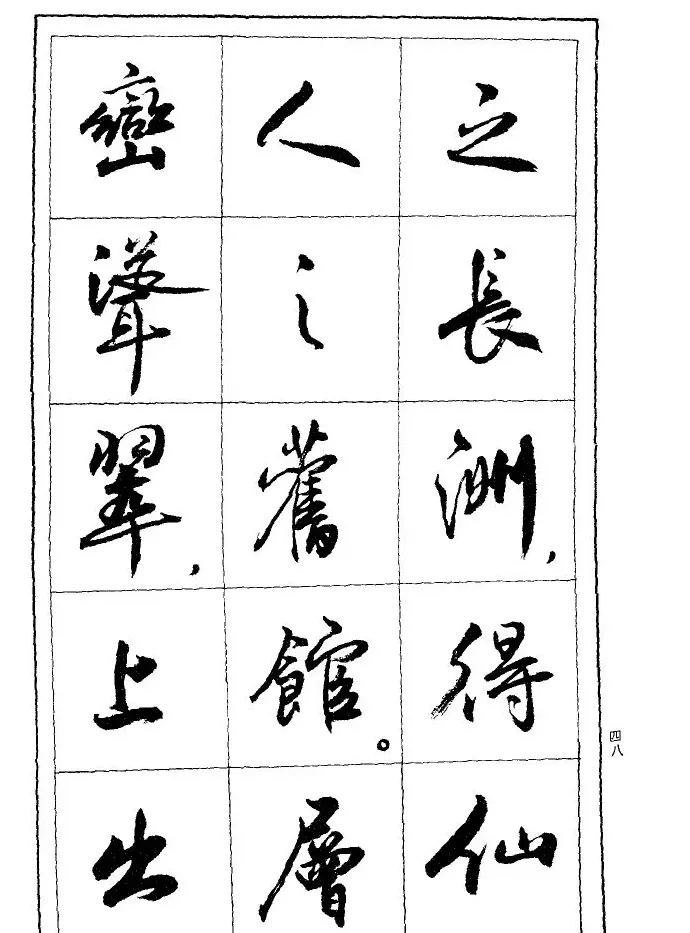 之長洲，得仙
人之舊館。層
巒聳翠，上出
四八